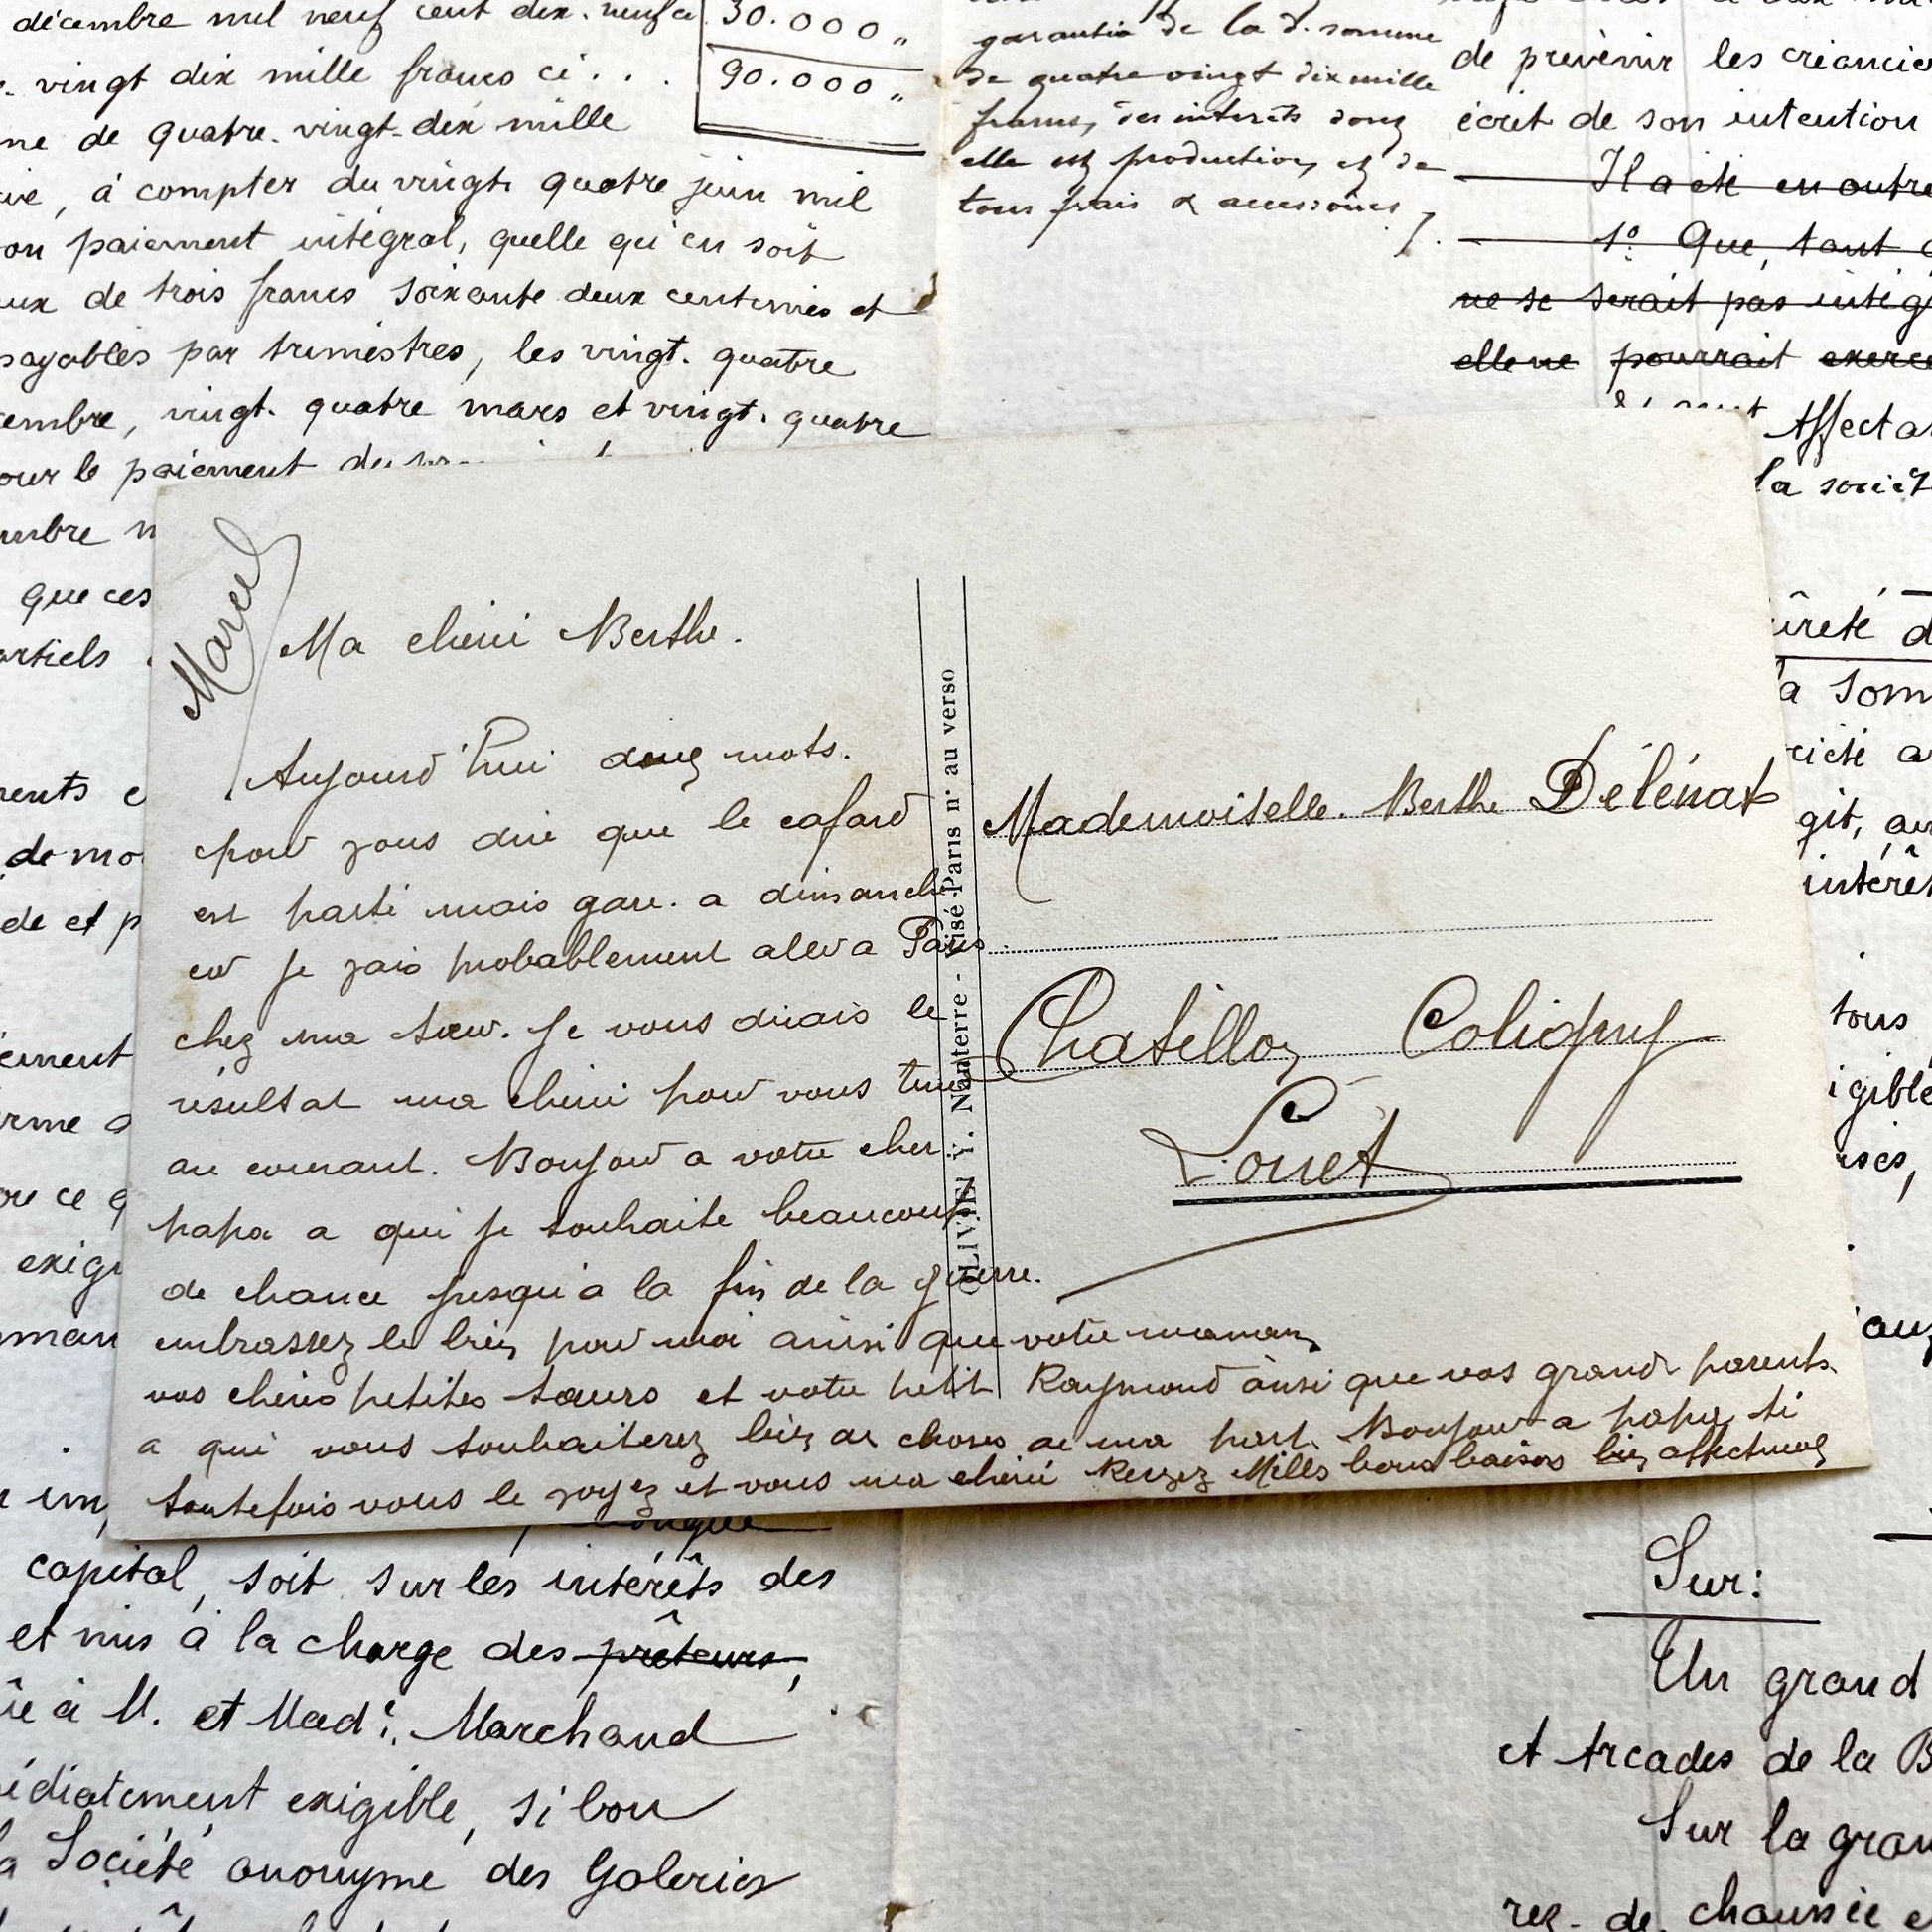 décembre mil neuf cent dix. neuf ci
30.000 "
vingt dix mille francs ci . . .
90.000 "
ne de quatre. vingt-dix mille
à compter du vingt. quatre juin mil
on paiement intégral, quelle qu'en soit
ux de trois francs soixante deux centimes et
payables par trimestres, les vingt. quatre
embre, vingt. quatre mars et vingt. quatre
our le paiement
mbre
que ces
artiels
de mo
de et p
ement
exig
man
garantie de la d. somme
de quatre vingt dix mille
francs, des intérêts dont
elle est production, et de
tous frais & accessoires
de prévenir les créancie
écrit de son intention
Il a été en outre
1° Que, tant
ne se serait pas intég
elle ne pourrait exerce
Affecta
la sociét
ûreté d
a som
ciété a
git, au
intérêt
tous
igible
Marcel
Ma cheri Berthe.
Aujourd'hui deux mots.
pour vous dire que le cafard
est parti mais gare. a dimanche
car je vais probablement aler a Paris
chez ma sœur. Je vous dirais le
résultat ma cheri pour vous tenir
au courant. Bonjour a votre cher
papa a qui je souhaite beaucoup
de chance jusqu'a la fin de la guerre.
embrassez le bien pour moi ainsi que votre maman
vos cheris petites sœurs et votre petit Raymond ainsi que vos grand parents
a qui vous souhaiterez bien de choses de ma part. Bonjour a papa si
toutefois vous le voyez et vous ma cheri Recevez Mills bons baisers bien affectueux
OLIVIER Y. Nanterre - Visé Paris n° au verso
Mademoiselle. Berthe Delénat
Chatillon Coligny
Loiret
capital, soit sur les intérêts des
et mis à la charge des prêteurs,
à M. et Made. Marchand
édiatement exigible, si bon
a Société anonyme des Galeries
Sur:
Un grand
et Arcades de la B
Sur la gran
rez. de. chaussée e